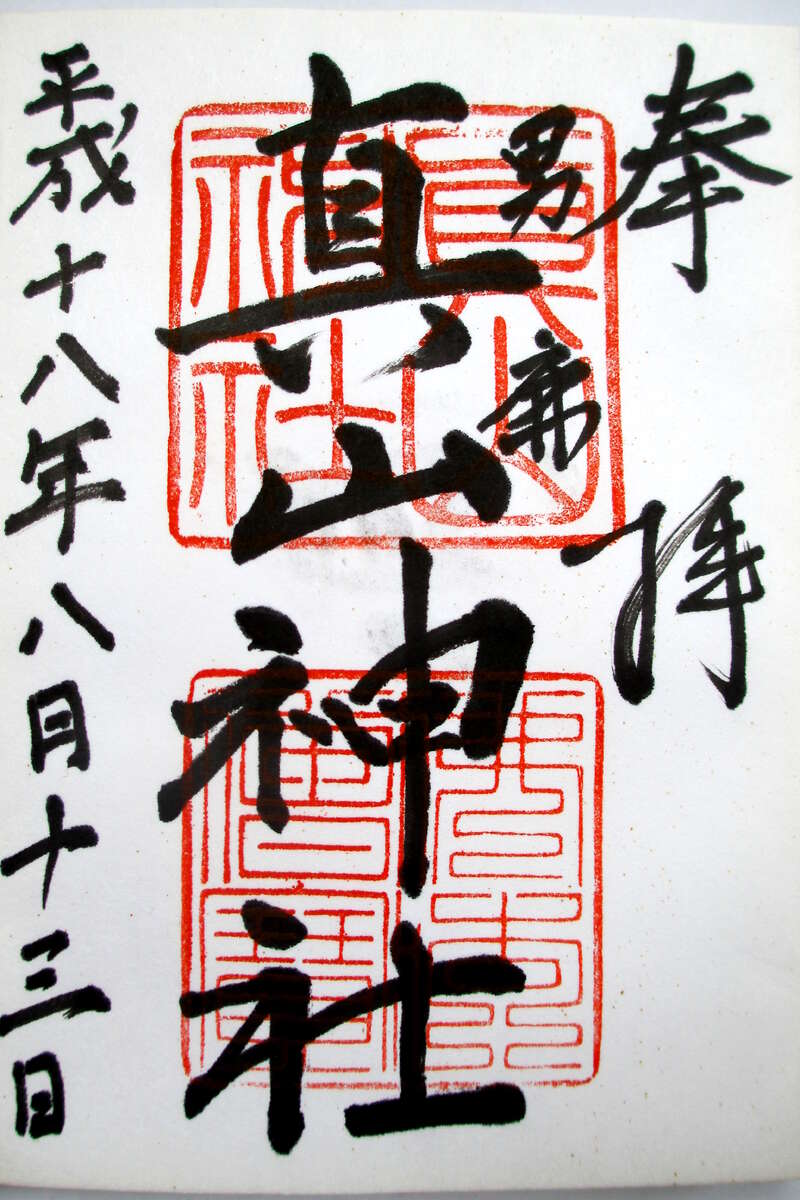 奉拝
男鹿
真山神社
真山
神社
平成十八年八月十三日